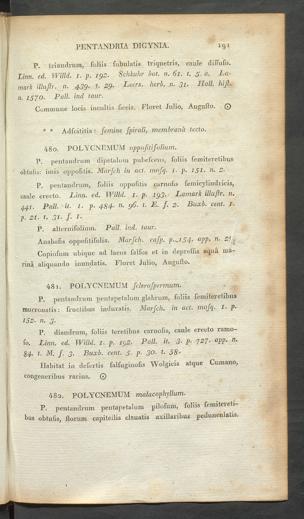 PENTANDRIA DIGYNIA. 191
P. triandrum, foliis subulatis triquetris, caule diffuso.
Linn. ed. Willd. 1. p. 192. Schkuhr bot. n. 61. t. 5. a. La-
mark illustr. n. 439. t. 29. Leers. herb. n. 31. Hall. hist.
n. 1570. Pall. ind. taur.
Commune locis incultis siccis. Floret Julio, Augusto. ⊙
* * Adscititia: semine spirali, membranâ tecto.
480. POLYCNEMUM oppositifolium.
P. pentandrum dipetalum pubescens, foliis semiteretibus
obtusis: imis oppositis. Marsch in act. mosq. 1. p. 151. n. 2.
P. pentandrum, foliis oppositis carnosis semicylindricis,
caule erecto. Linn. ed. Willd. 1. p. 193. Lamark illustr. n.
441. Pall. it. 1. p. 484. n. 96. t. E. f. 2. Buxb. cent. 1.
p. 21. t. 31. f. 1.
P. alternifolium. Pall. ind. taur.
Anabasis oppositifolia. Marsch. casp. p. 154. app. n. 21.
Copiosum ubique ad lacus salsos et in depressis aquâ ma-
rinâ aliquando inundatis. Floret Julio, Augusto.
481. POLYCNEMUM sclerospermum.
P. pentandrum pentapetalum glabrum, foliis semiteretibus
mucronatis: fructibus induratis. Marsch. in act. mosq. 1. p.
152. n. 3.
P. diandrum, foliis teretibus carnosis, caule erecto ramo-
so. Linn. ed. Willd. 1. p. 192. Pall. it. 3. p. 727. app. n.
84. t. M. f. 3. Buxb. cent. 3. p. 30. t. 58.
Habitat in desertis salsuginosis Wolgicis atque Cumano,
congeneribus rarius. ⊙
482. POLYCNEMUM malacophyllum.
P. pentandrum pentapetalum pilosum, foliis semitereti-
bus obtusis, florum capitellis clavatis axillaribus pedunculatis.